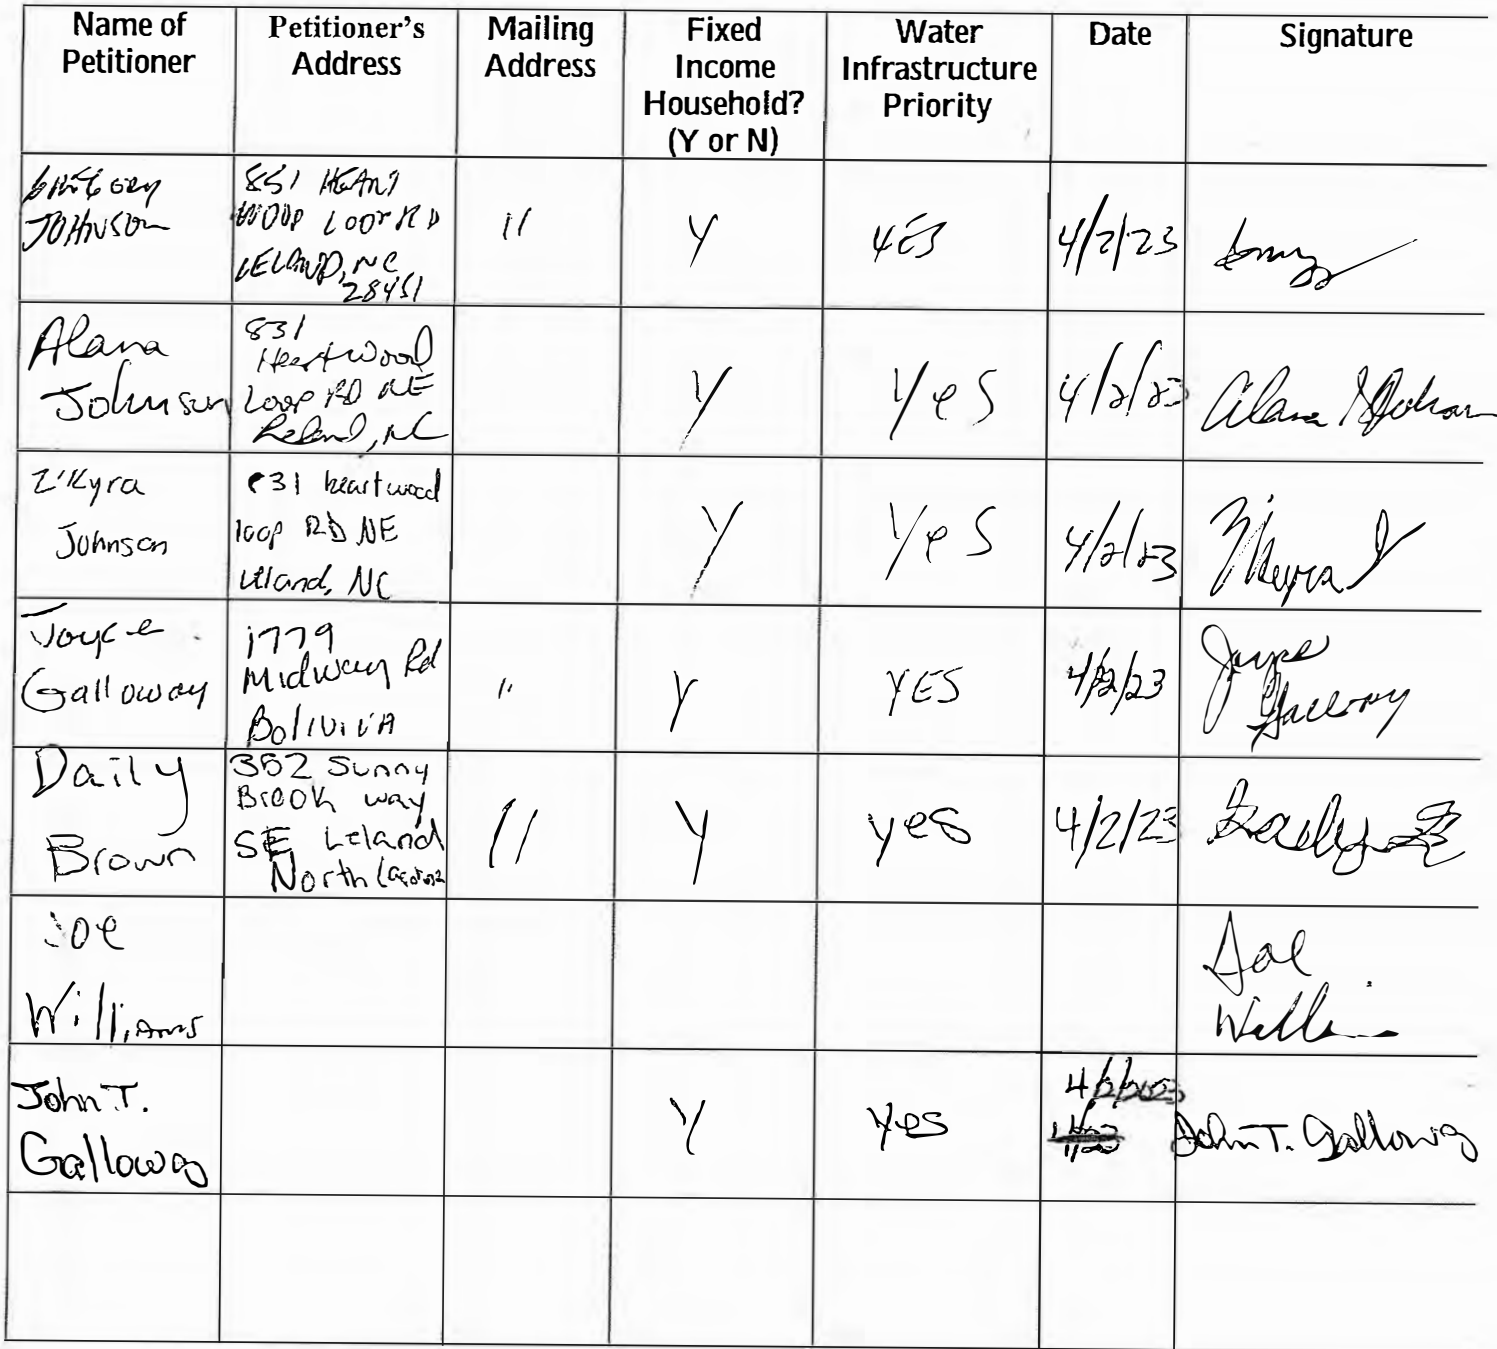 Name of Petitioner Petitioner's Address Mailing Address Fixed Income Household? (Y or N) Water Infrastructure Priority Date Signature
GREGORY
JOHNSON
851 HEART
WOOD LOOP RD
LELAND, NC
28451
11
Y
YES
4/2/23
Alana
Johnson
831
Heartwood
Loop RD NE
Leland, NC
Y
Yes
4/2/23
Alana Johnson
Z'Kyra
Johnson
831 heartwood
loop RD NE
Leland, NC
Y
Yes
4/2/23
Z'Kyra J
Joyce
Galloway
1779
Midway Rd
Bolivia
"
Y
YES
4/2/23
Joyce
Galloway
Daily
Brown
352 Sunny
Brook way
SE Leland
North Carolina
11
Y
yes
4/2/23
Joe
Williams
Joe
Willi
John T.
Galloway
Y
Yes
4/2/2023
John T. Galloway